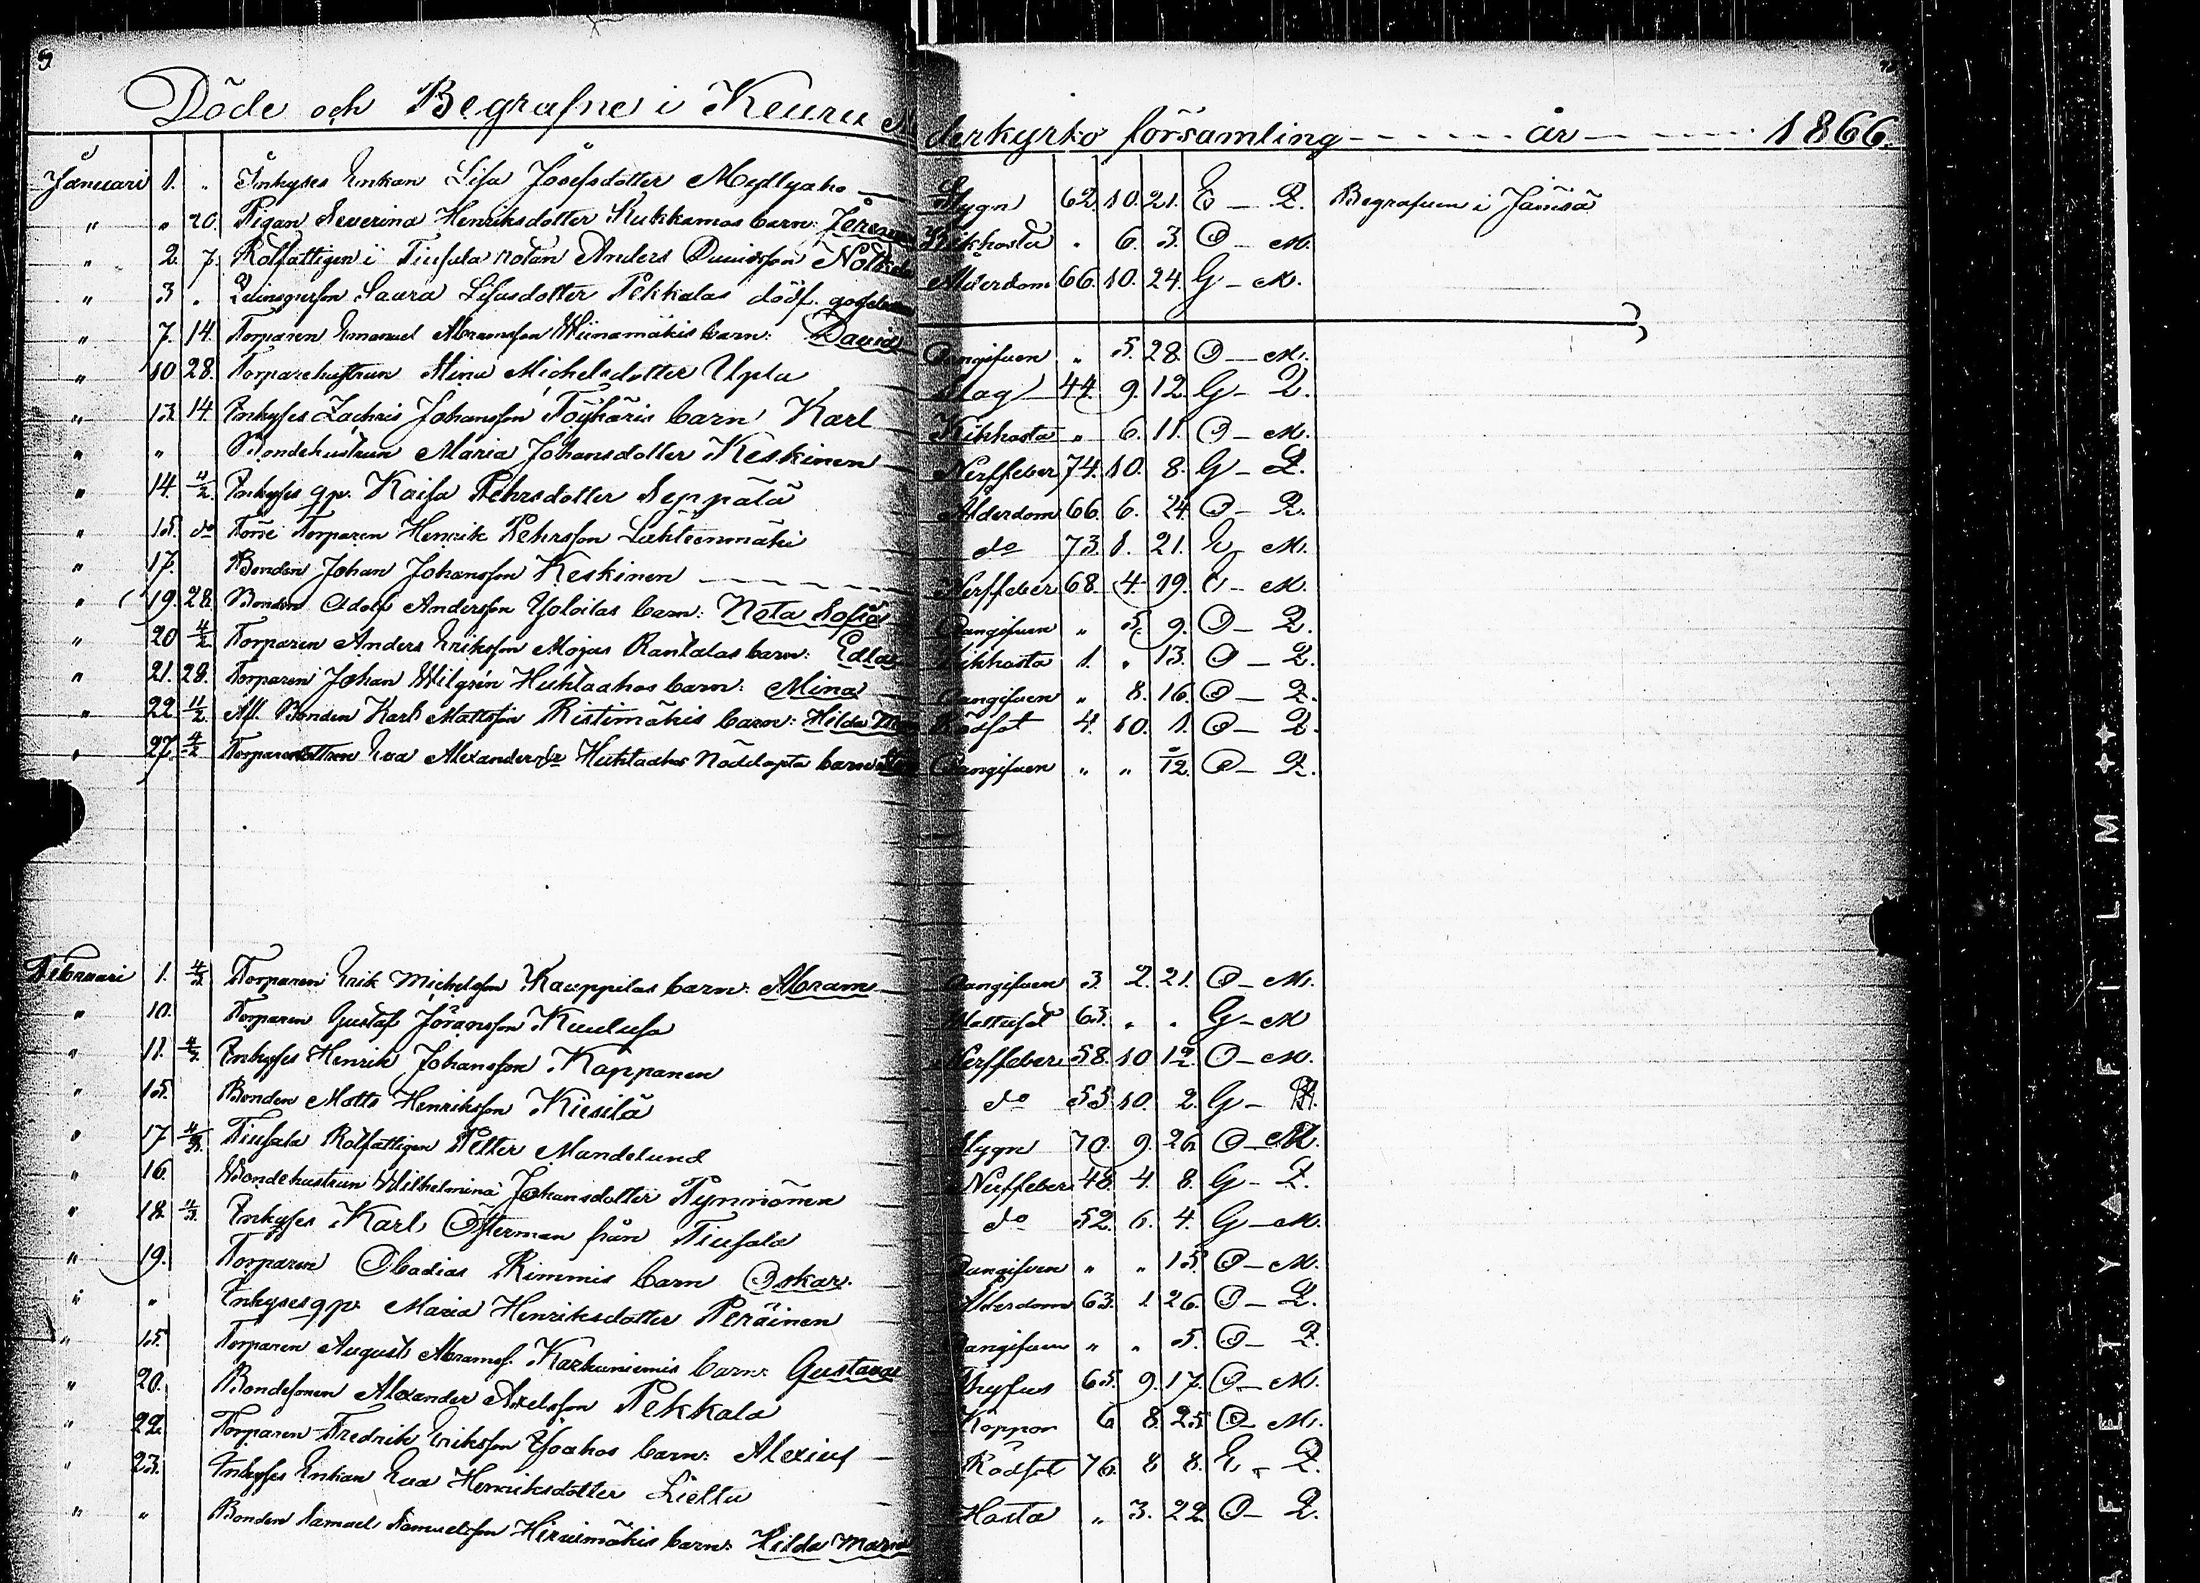 Döde och Begrafne i Keuru Moderkyrko församling - - - - - - år - - - - - - 1866.
Januari 1. " Inhyses Enkan Lisa Josefsdotter Myllyaho — Stygn 62. 10. 21. E — Q. Begrafven i Jämsä
" " 20. Pigan Severina Henriksdotter Kukkamos barn: Kikhosta " 6. 3. O — M.
" 2. 7. Rotfattigen i Tiusala rotan Anders Davidsson Ålderdom 66. 10. 24. G — M.
" 3 " Saura Lisasdotter Pekkalas dödf. gossebarn
" 7. 14. Torparen Emanuel Abramsson Wiinamäkis barn: David Oangifven " 5. 28. O — M.
" 10 28. Torparehustrun Mina Michelsdotter Ypla Slag 44. 9. 12. G — Q.
" 13. 14. Inhyses Zachris Johansson Töyhäris barn Karl Kikhosta " 6. 11. O — M.
" " Bondehustrun Maria Johansdotter Keskinen — Nerffeber 74. 10. 8. G — Q.
" 14. 4/2 Inhyses qp. Kaisa Pehrsdotter Seppälä Ålderdom 66. 6. 24. O — Q.
" 15. do Förre Torparen Henrik Pehrsson Lähteenmäki do 73. 8. 21. E — M.
" 17. Bonden Johan Johansson Keskinen - - - - - Nerffeber 68. 4. 19. G — M.
" 19. 28. Bonden Adolf Andersson Yloilas barn: Neta Sofia Oangifven " 5. 9. O — Q.
" 20 4/2 Torparen Anders Eriksson Mojas Rantalas barn: Edla Kikhosta 1. " 13. O — Q.
" 21. 28. Torparen Johan Wilgrén Huhtaahos barn: Mina — Oangifven " 8. 16. O — Q.
" 22 11/2 Afl. Bonden Karl Mattsson Ristimäkis barn: Hilda Rödsot 4. 10. 1. O — Q.
" 27. 4/2 Eva Huhtaahos Nöddöpta barn Oangifven " " 0/12. O — Q.
Februari 1. 4/3 Torparen Erik Michelsson Kauppilas barn: Abram — Oangifven 3. 2. 21. O — M.
" 10. Torparen Gustaf Göransson Kuulusa 63. " " G — M
" 11. 4/3. Inhyses Henrik Johansson Kappanen Nerffeber 58. 10 12. O — M.
" 15. Bonden Matts Henriksson Kiesilä do 55. 10. 2. G — M.
" 17. 4/3. Tiusala Rotfattigen Petter Mandelund Stygn 70. 9. 26. O — M.
" 16. Bondehustrun Wilhelmina Johansdotter Tynnönen Nerffeber 48. 4. 8. G — Q.
" 18. 4/3. Inhyses Karl Österman från Tiusala do 52. 6. 4. G — M.
" 19. Torparen Obadias Rimmis barn Oskar. Oangifven " " 15. O — M.
" " Inhyses qp. Maria Henriksdotter Peräinen Ålderdom 63. 1. 26. O — Q.
" 15. Torparen August Abramsf. Karhuniemis barn: Gustava Oangifven " " 5. O — Q.
" 20. Bondesonen Alexander Axelsson Pekkala Thyfus 65. 9. 17. O — M.
" 22. Torparen Fredrik Eriksson barn: Alexius — Koppor 6 8. 25. O — M.
" 23. Inhyses Enkan Eva Henriksdotter Lieltu Rödsot 76. 8 8. E — Q.
" " Bonden Samuel Samuelsson Hirsimäkis barn: Hilda Maria Hosta " 3. 22. O — Q.
SAFETY FILM